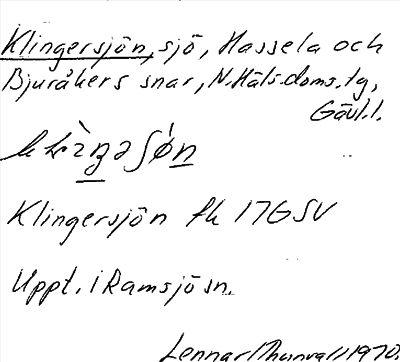 Klingersjön, sjö, Hassela och
Bjuråkers snar, N.Häls.doms.tg,
Gävl.l.
Klingersjön fk 17GSV
Uppt. i Ramsjö sn.
Lennart Thunvall 1970.